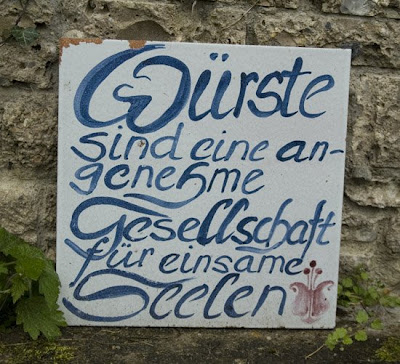 Würste
sind eine an-
genehme
Gesellschaft
für einsame
Seelen